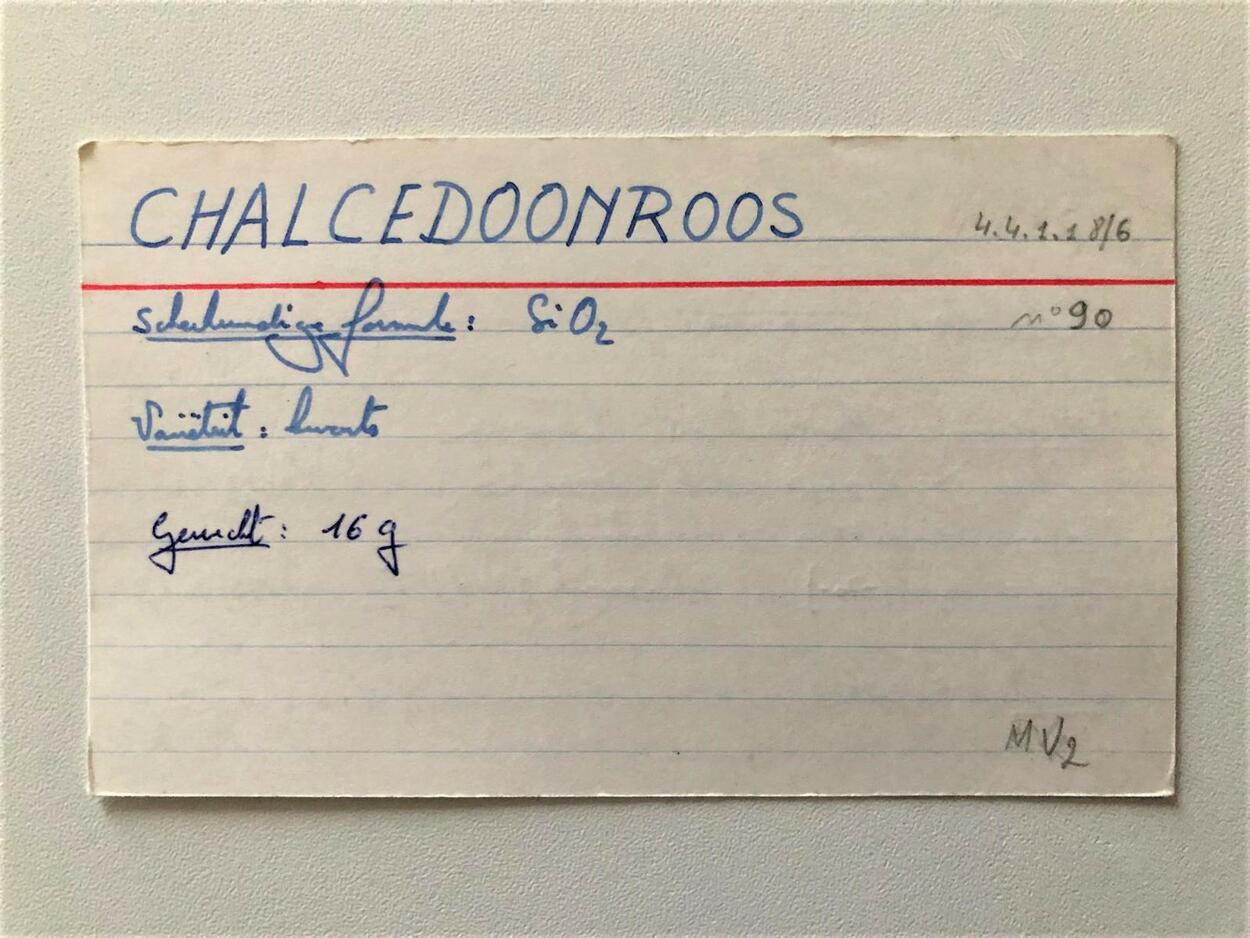 CHALCEDOONROOS
4.4.1.1 8/6
Scheikundige formule : SiO2
n° 90
Variëteit : kwarts
Gewicht : 16 g
MV2